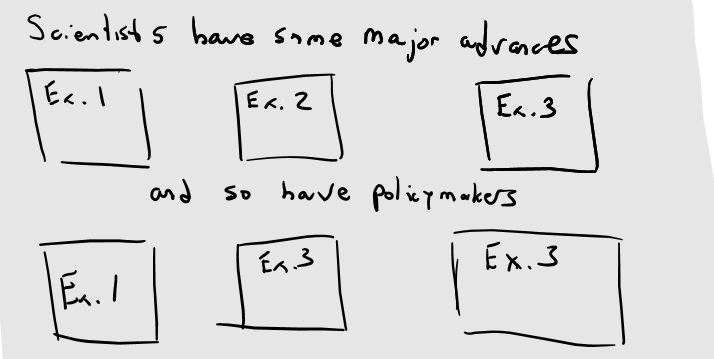 Scientists have some major advances
Ex. 1 Ex. 2 Ex. 3
and so have policymakers
Ex. 1 Ex. 3 Ex. 3